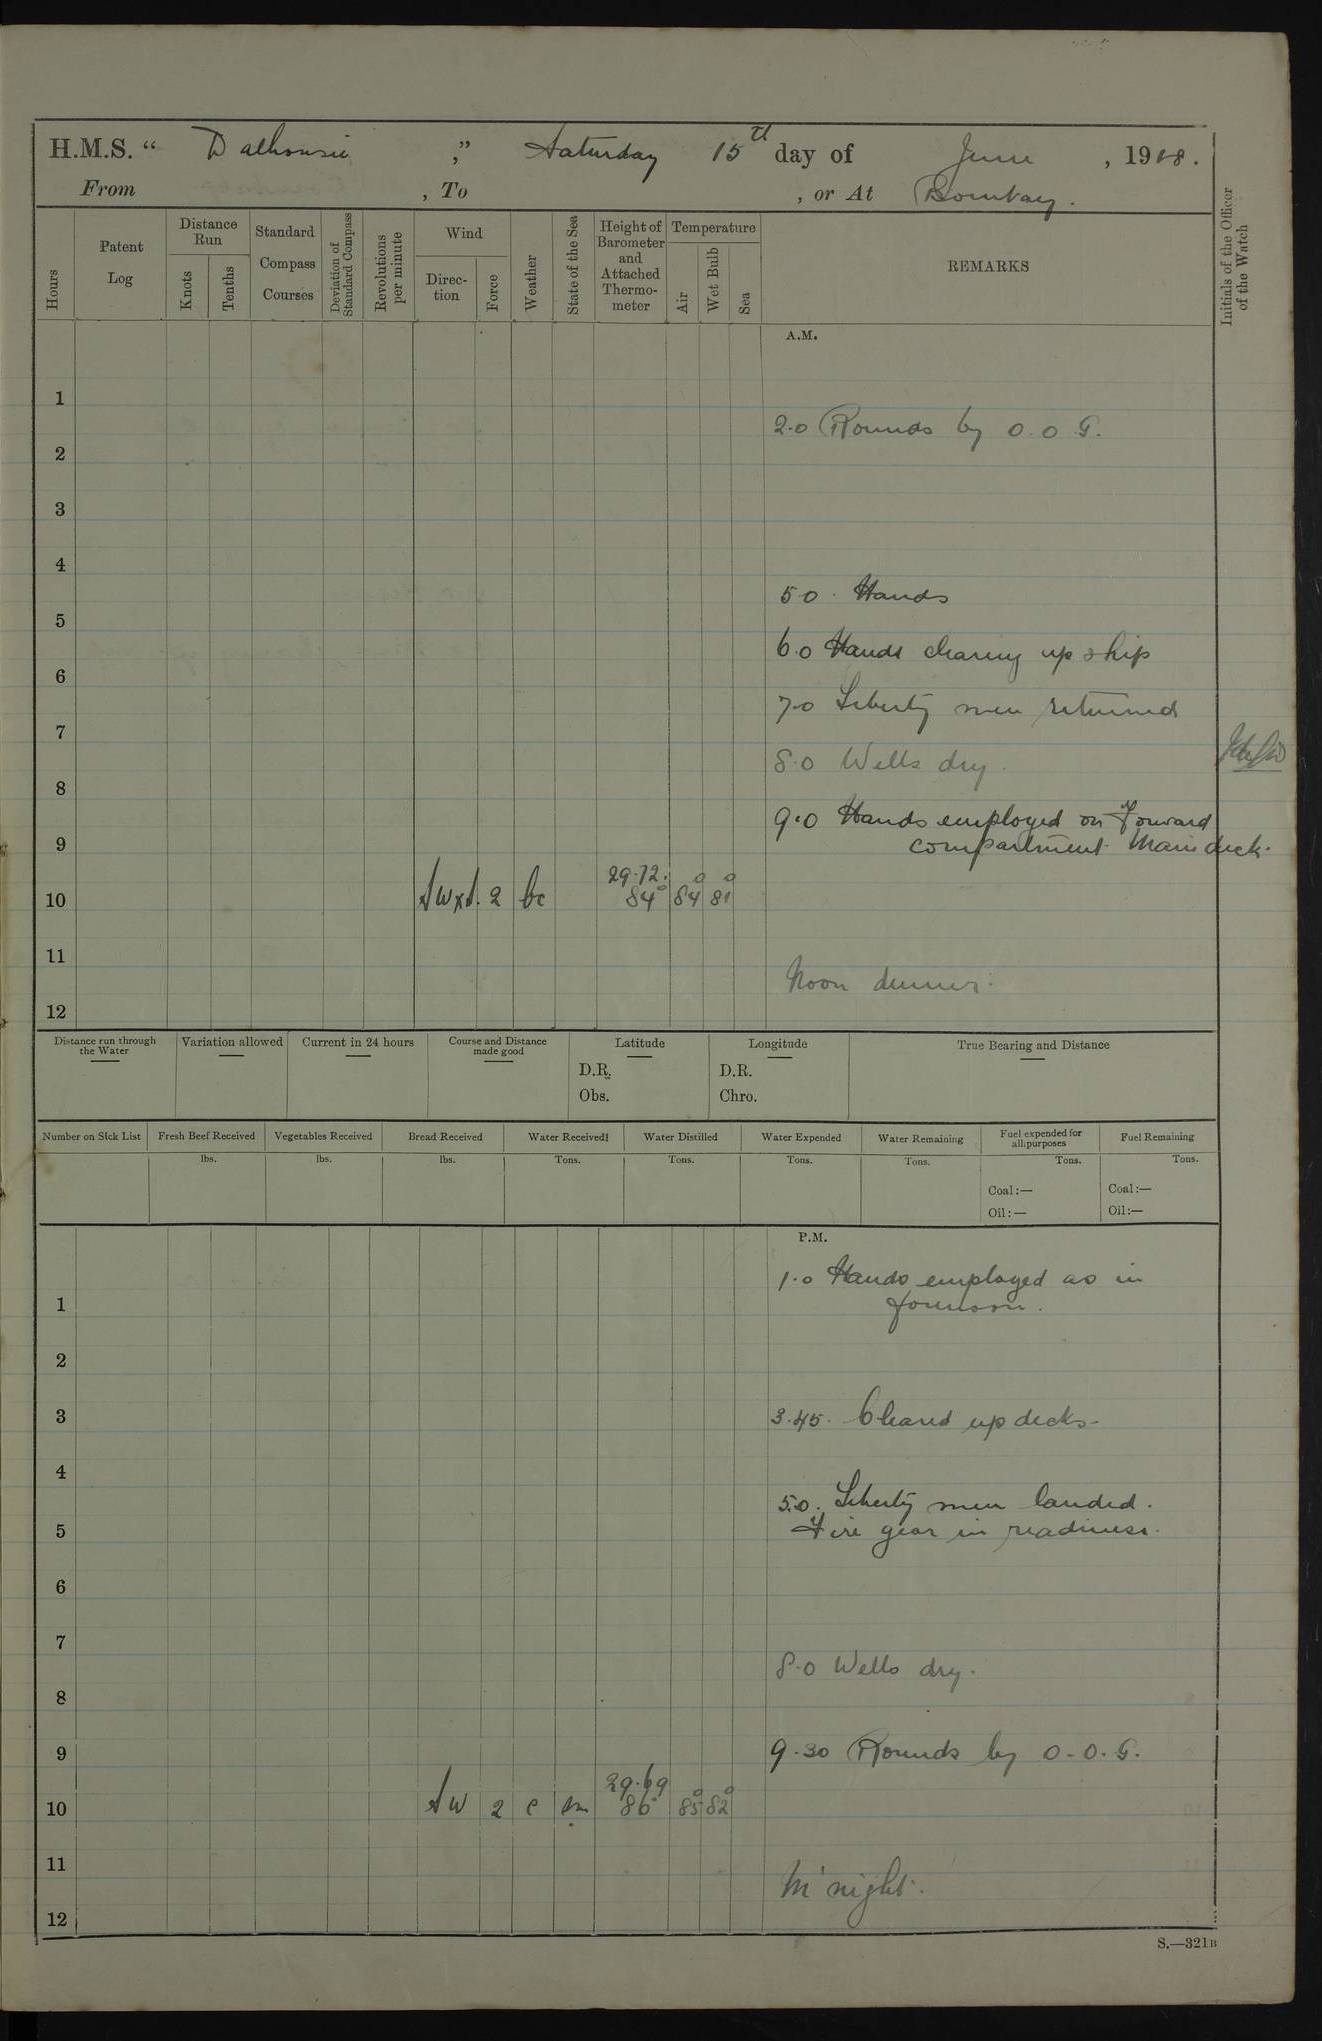 H.M.S. “ Dalhousie ,” Saturday 15th day of June , 1918.
From , To , or At Bombay.
Hours
Patent Log
Distance Run
Knots
Tenths
Standard Compass Courses
Deviation of Standard Compass
Revolutions per minute
Wind
Direc-tion
Force
Weather
State of the Sea
Height of Barometer and Attached Thermo-meter
Temperature
Air
Wet Bulb
Sea
REMARKS
Initials of the Officer of the Watch
A.M.
1
2.0 Rounds by O.O.G.
2
3
4
5.0. Hands
5
6.0 Hands clearing up ship
6
7.0 Liberty men returned
7
8.0 Wells dry.
8
9.0 Hands employed on forward
9 compartment Main deck.
29.72.
10 SWxS. 2 bc 84° 84° 81°
11
Noon dinner.
12
Distance run through the Water
Variation allowed
Current in 24 hours
Course and Distance made good
Latitude
D.R.
Obs.
Longitude
D.R.
Chro.
True Bearing and Distance
Number on Sick List
Fresh Beef Received
Vegetables Received
Bread Received
Water Received
Water Distilled
Water Expended
Water Remaining
Fuel expended for all purposes
Fuel Remaining
lbs. lbs. lbs. Tons. Tons. Tons. Tons. Tons. Tons.
Coal:— Coal:—
Oil:— Oil:—
P.M.
1.0 Hands employed as in
1 forenoon.
2
3 3.45. Cleared up decks.
4
5.0. Liberty men landed.
5 Fire gear in readiness.
6
7
8.0 Wells dry.
8
9 9.30 Rounds by O.O.G.
29.69
10 SW 2 c sm 86° 85° 82°
11
M'night.
12
S.—321B